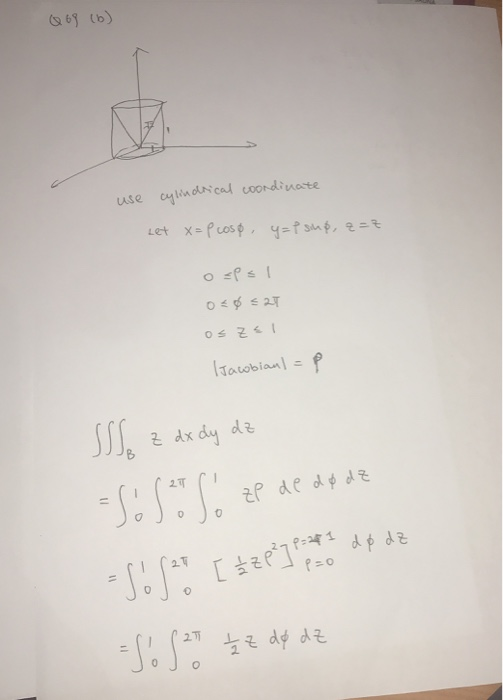 Q69 (b)
1
use cylindrical coordinate
Let x=ρcosφ, y=ρsinφ, z=z
0≤ρ≤1
0≤φ≤2π
0≤z≤1
|Jacobian| = ρ
∭_B z dx dy dz
= ∫₀¹ ∫₀^2π ∫₀¹ zρ dρ dφ dz
= ∫₀¹ ∫₀^2π [½zρ²]_ρ=0^ρ=1 dφ dz
= ∫₀¹ ∫₀^2π ½z dφ dz